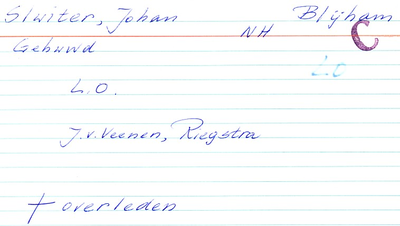 Sluiter, Johan NH Blijham
Gehuwd C
L.O. L.O
J.v.Veenen, Riegstra
† overleden